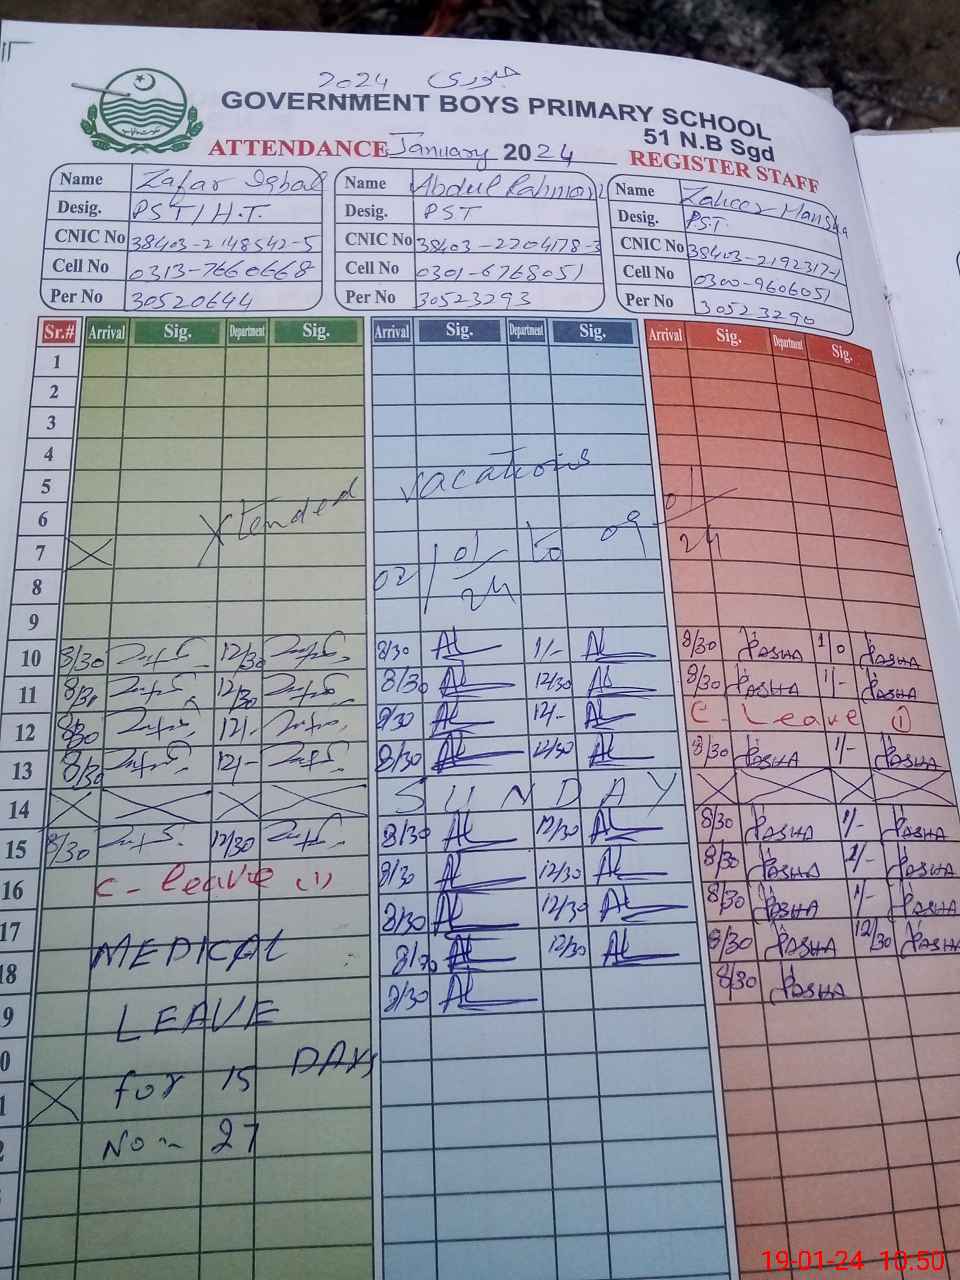 2024 جنوری
GOVERNMENT BOYS PRIMARY SCHOOL
51 N.B Sgd
ATTENDANCE January 2024 REGISTER STAFF
Name Zafar Iqbal
Desig. PST/H.T.
CNIC No 38403-2148542-5
Cell No 0313-7660668
Per No 30520644
Name Abdul Rahman
Desig. PST
CNIC No 38403-2204178-3
Cell No 0301-6768051
Per No 30523293
Name Zaheer Mansha
Desig. P.S.T.
CNIC No 38403-2192317-1
Cell No 0300-9606051
Per No 30523290
Sr.# Arrival Sig. Department Sig. Arrival Sig. Department Sig. Arrival Sig. Department Sig.
1
2
3
4
5 Xtended vacations
6
7
8 02/01/24 to 09/01/24
9
10 8/30 12/30 8/30 AL 1/- AL 8/30 PASHA 1/0 PASHA
11 8/30 12/30 8/30 AL 12/30 AL 8/30 PASHA 1/- PASHA
12 8/30 12/- 8/30 AL 12/- AL C-Leave (1)
13 8/30 12/- 8/30 AL 12/30 AL 8/30 PASHA 1/- PASHA
14 SUNDAY
15 8/30 12/30 8/30 AL 12/30 AL 8/30 PASHA 1/- PASHA
16 C-leave (1) 8/30 AL 12/30 AL 8/30 PASHA 1/- PASHA
17 8/30 AL 12/30 AL 8/30 PASHA 1/- PASHA
18 MEDICAL 8/30 AL 12/30 AL 8/30 PASHA 12/30 PASHA
9 LEAVE 8/30 AL 8/30 PASHA
0
1 for 15 DAYS
2 No- 27
19-01-24 10.50